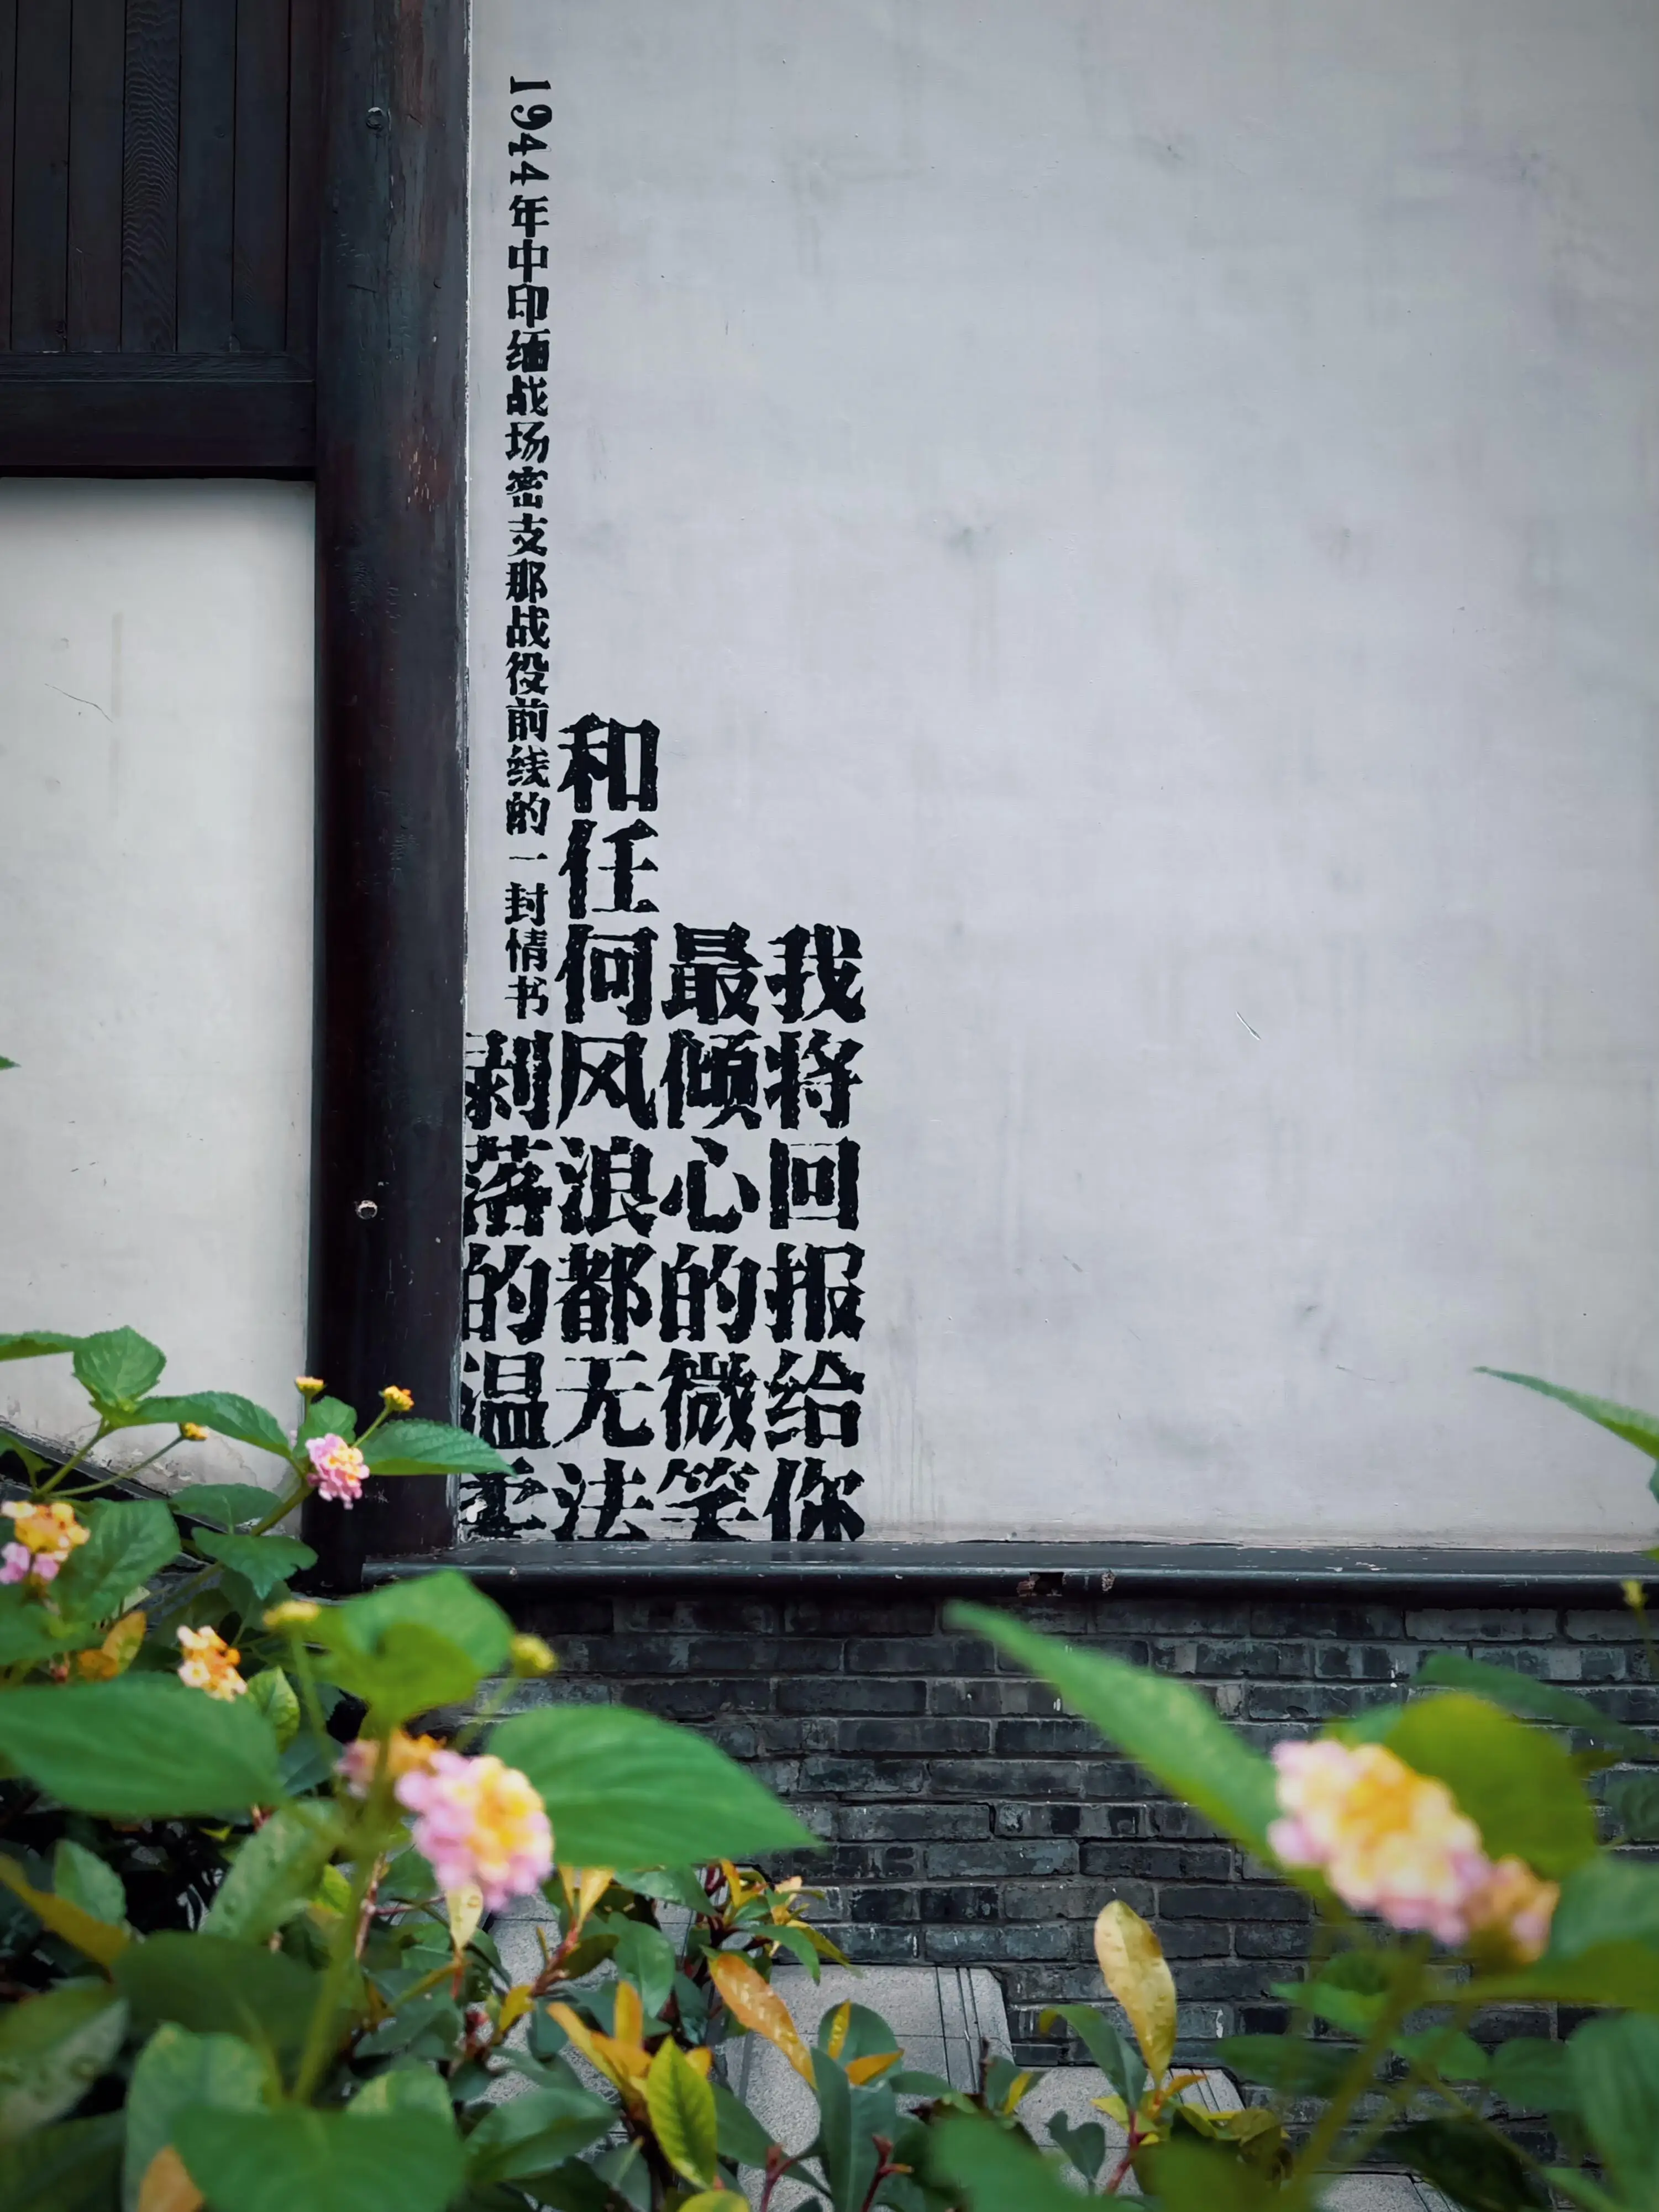 我将回报给你
最倾心的微笑
和任何风浪都无法
剥落的温柔
1944年中印缅战场密支那战役前线的一封情书